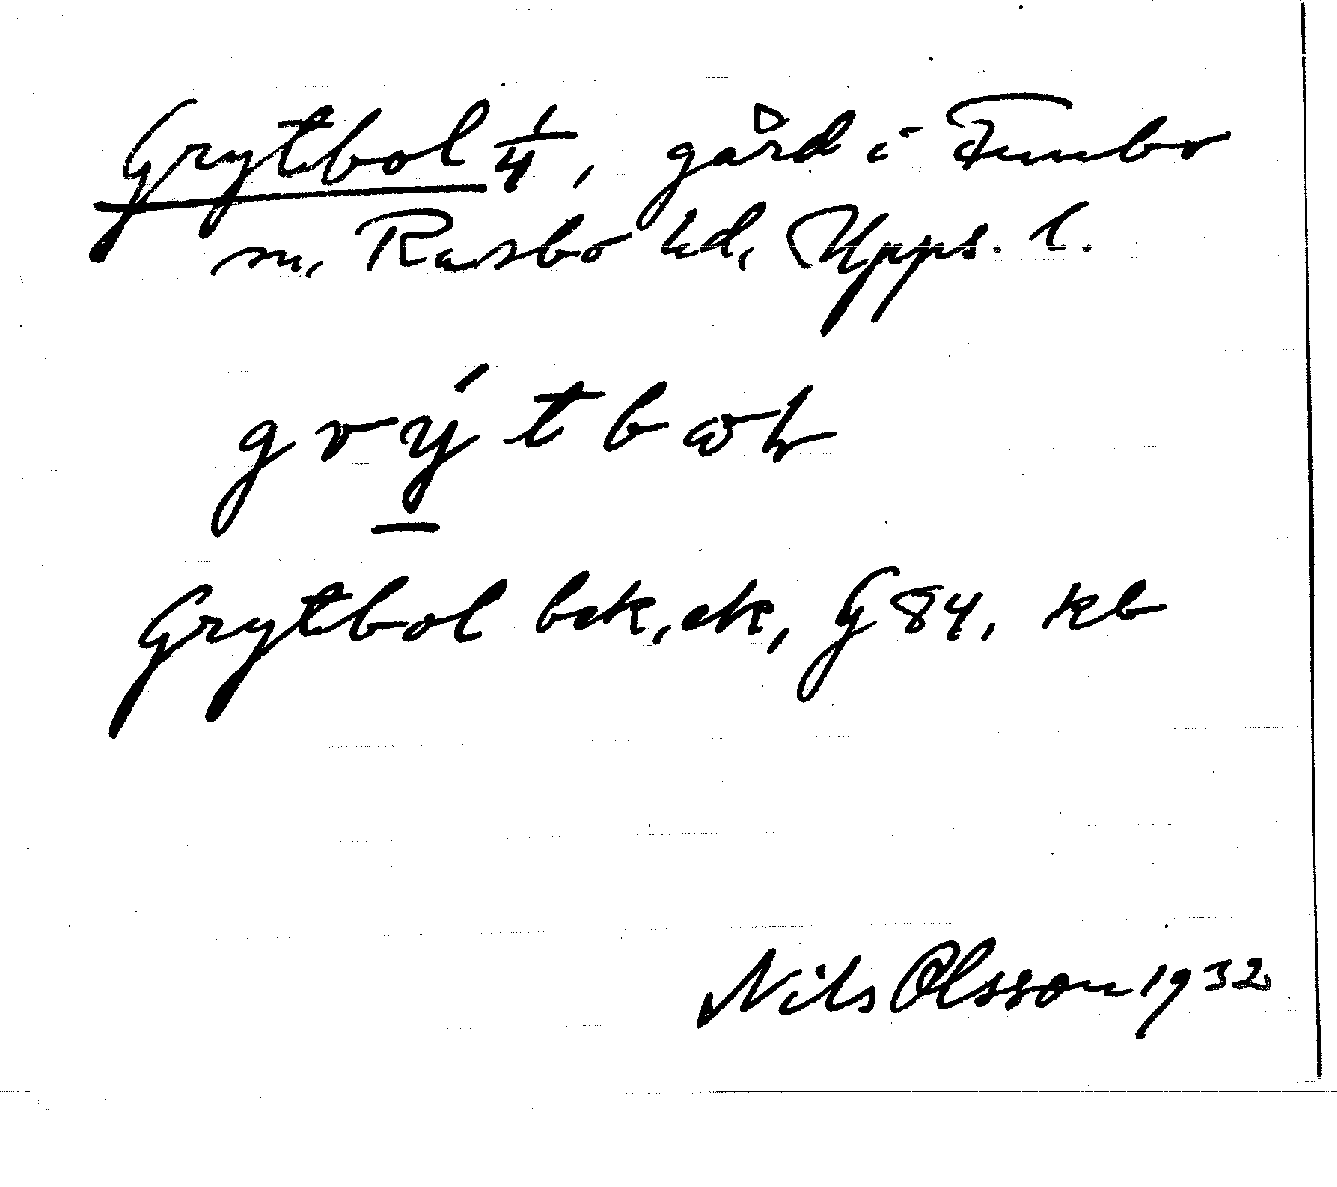 Grytbol 1/4, gård i Funbo
sn, Rasbo hd, Upps. l.
grýtbol
Grytbol bek, ek, G 84, kb
Nils Olsson 1932